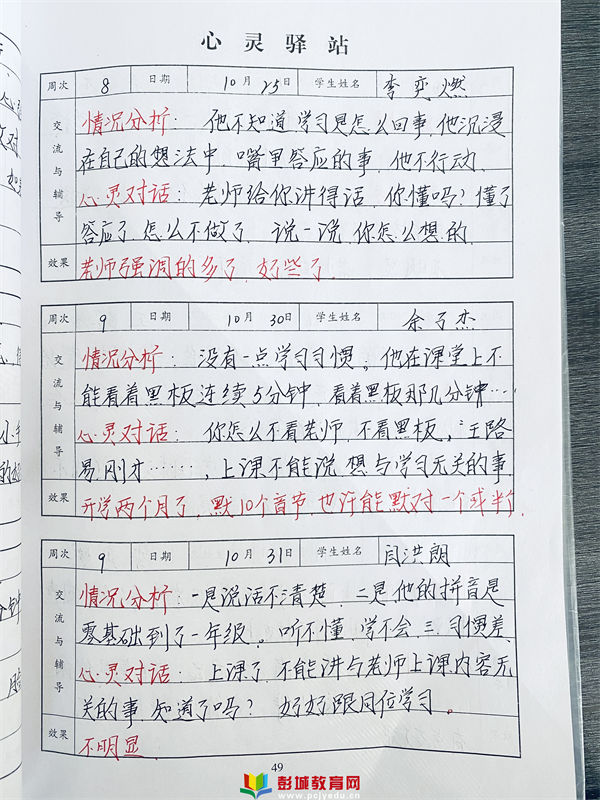 心灵驿站
周次 8 日期 10月25日 学生姓名 李奕燃
交流与辅导
情况分析：他不知道学习是怎么回事，他沉浸
在自己的想法中，嘴里答应的事，他不行动.
心灵对话：老师给你讲得话，你懂吗？懂了
答应了，怎么不做了，说一说，你怎么想的.
效果 老师强调的多了，好些了.
周次 9 日期 10月30日 学生姓名 余子杰
交流与辅导
情况分析：没有一点学习习惯。他在课堂上不
能看着黑板连续5分钟，看着黑板那几分钟……
心灵对话：你怎么不看老师，不看黑板，王路
易刚才……，上课不能说、想与学习无关的事
效果 开学两个月了，默10个音节，也许能默对一个或半个.
周次 9 日期 10月31日 学生姓名 闫洪朗
交流与辅导
情况分析：一是说话不清楚，二是他的拼音是
零基础到了一年级。听不懂，学不会，三.习惯差
心灵对话：上课了，不能讲与老师上课内容无
关的事，知道了吗？好好跟同位学习。
效果 不明显
49
彭城教育网
www.pcjyedu.cn